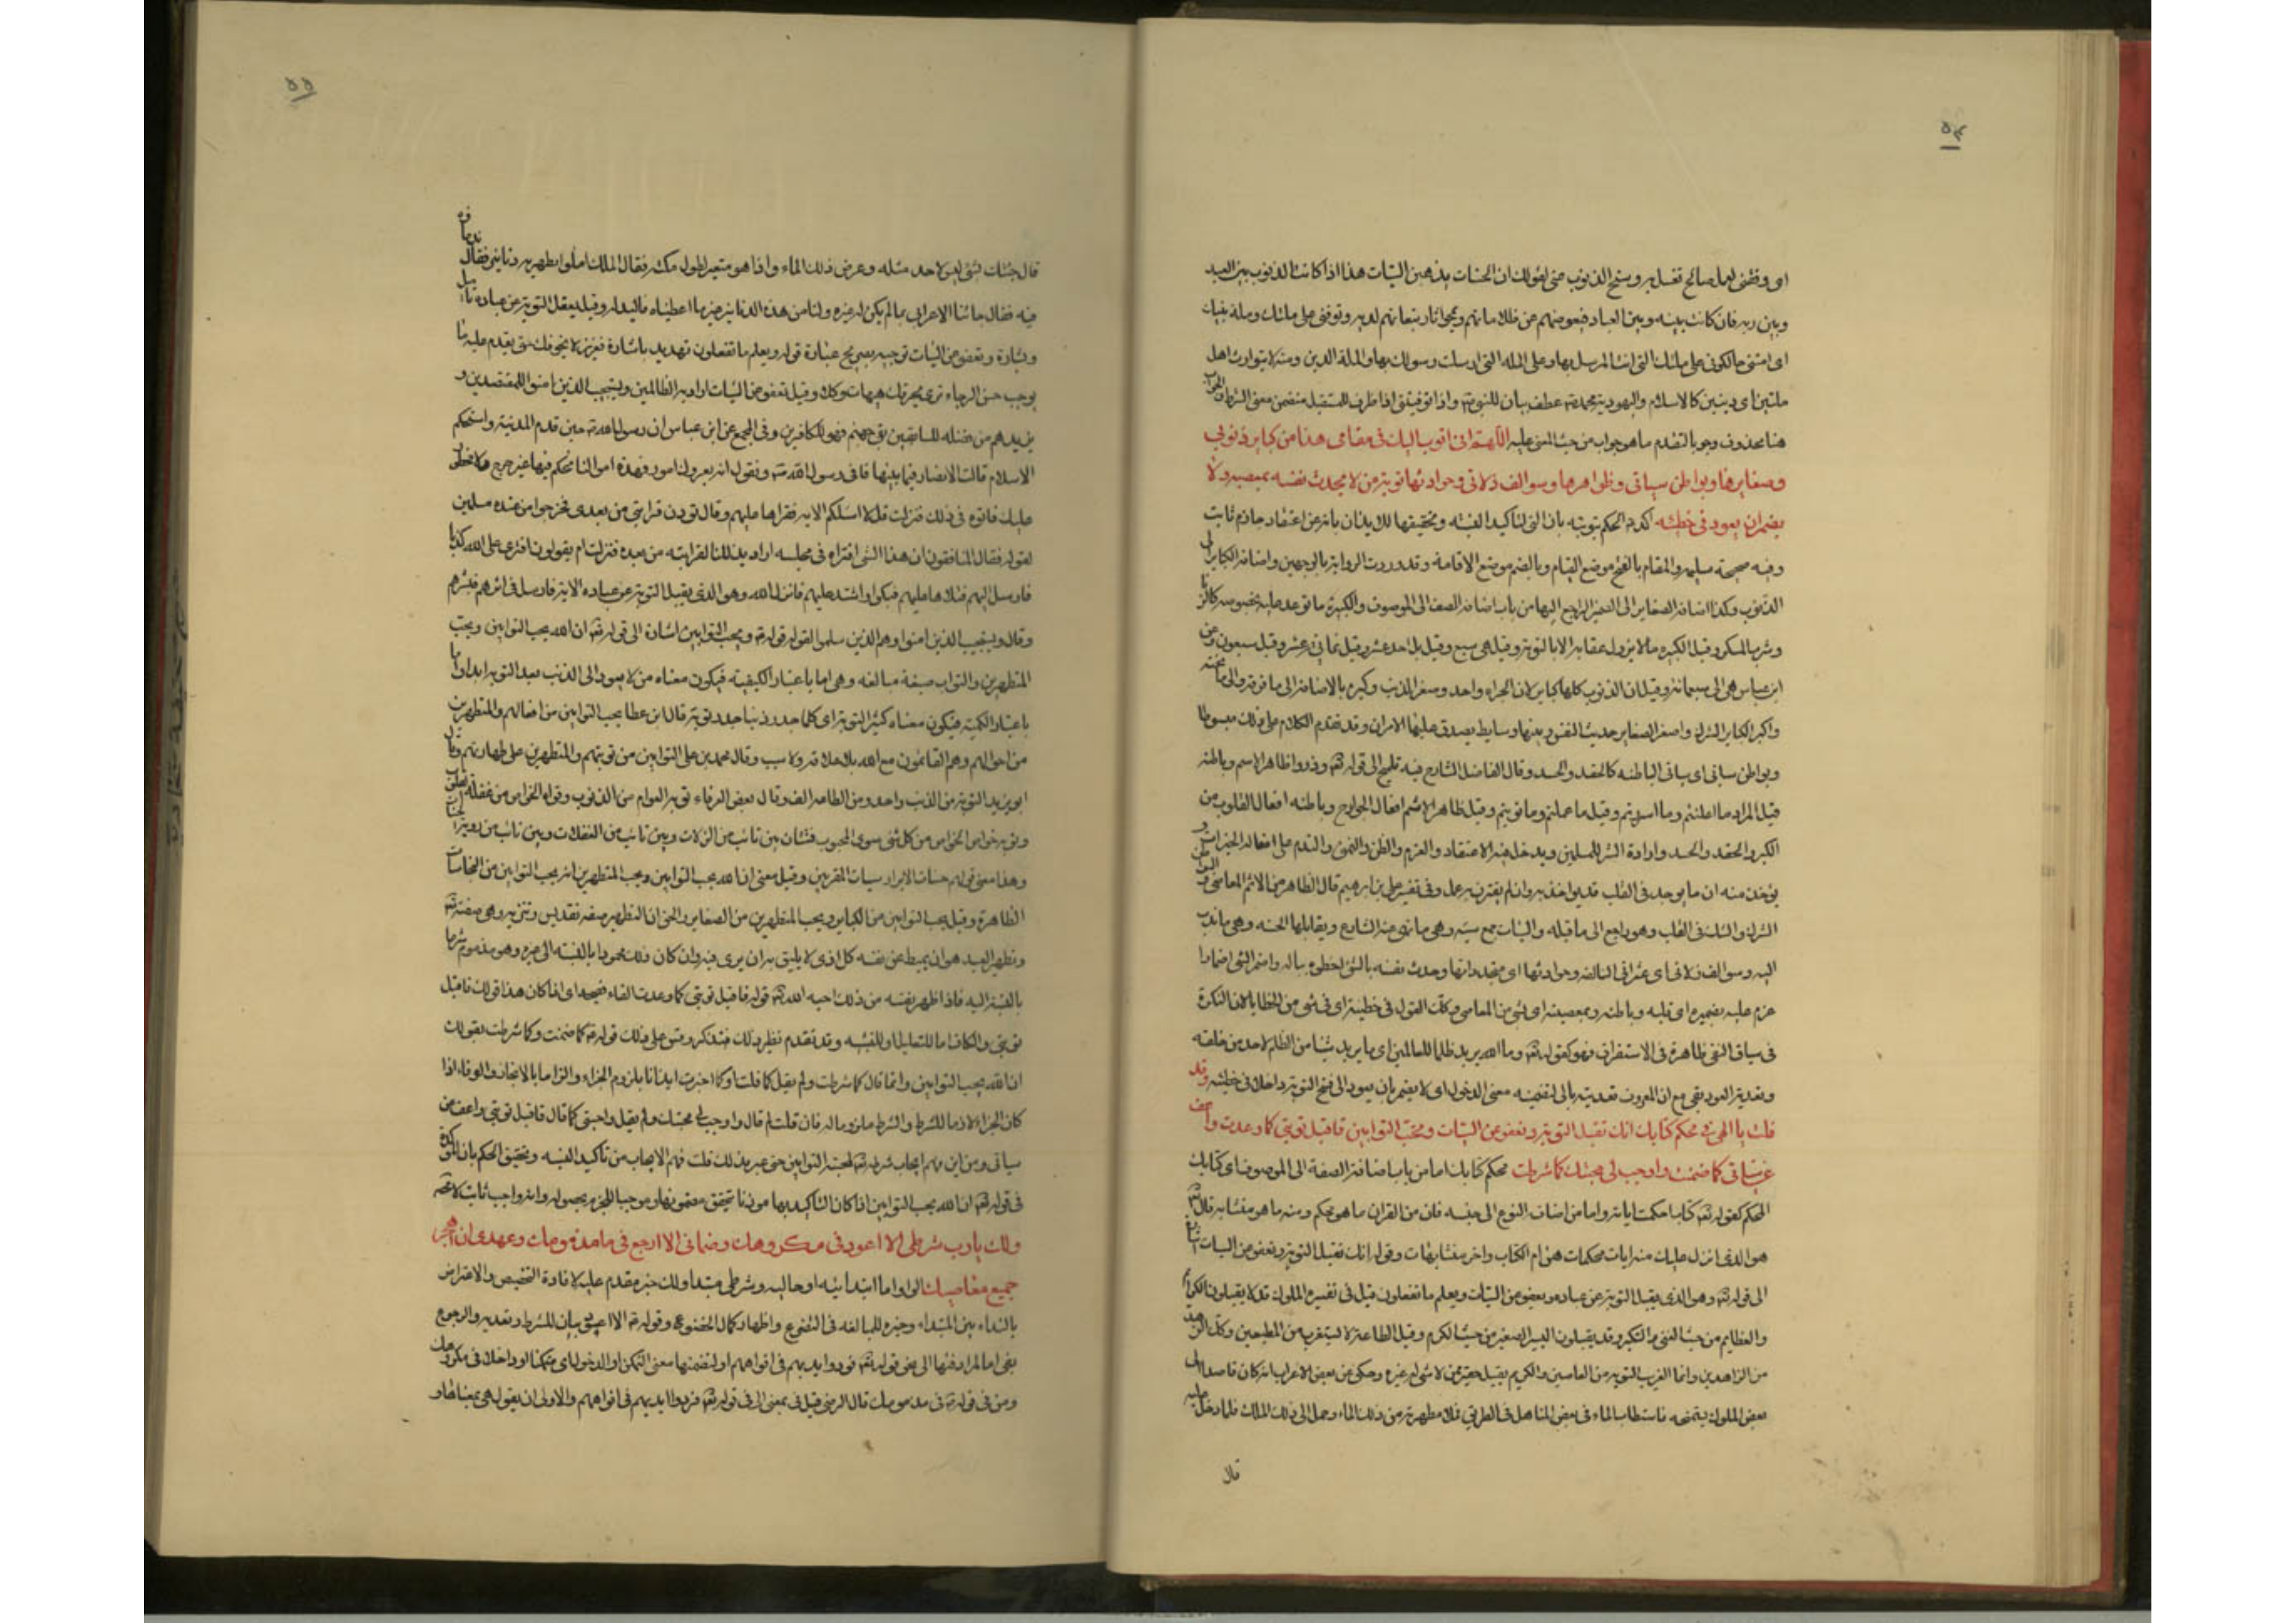 ٥٤
اى وفقنى لعمل صالح تغسل به وسخ الذنوب حتى لقولك ان الحسنات يذهبن السيئات هذا اذا كانت الذنوب بين العبد
وبين ربه فان كانت بينه وبين العباد فبعوضهم عن ظلاماتهم ويمحو اثار تبعاتهم لديه وتوفنى على ملتك وملة نبيك
اى امتنى حالكونى على ملتك التى انت المرسل بها وعلى المله التى ارسلت رسولك بها والملة الدين ومنه لا يتوارث اهل
ملتين اى دينين كالاسلام واليهودية ومحمد عطف بيان للنبى واذا توفيتنى اذا ظرف للمستقبل متضمن معنى الشرط الجواب
هنا محذوف وجوبا لتقدم ما هو جواب من حيث المعنى عليه اللهم انى اتوب اليك فى مقامى هذا من كباير ذنوبى
وصغايرها وبواطن سيئاتى وظواهرها وسوالف زلاتى وحوادثها توبة من لا يحدث نفسه بمعصية ولا
يضمر ان يعود فى خطيئة اكد الحكم بتوبته بان التى لتاكيد النسبه وتحقيقها للايذان بانه عن اعتقاد جازم ثابت
ونيه صحيحة سليمه والمقام بالفتح موضع القيام وبالضم موضع الاقامة وقد وردت الرواية بالوجهين واضافة الكباير الى
الذنوب وكذا اضافة الصغاير الى الضمير الراجع اليها من باب اضافة الصفة الى الموصوف والكبيرة ما توعد عليه بخصوصه كالزنا
وشرب المسكر وقيل الكبيره ما لا يزول عقابه الا بالتوبه وقيل هى سبع وقيل بل احد عشر وقيل ثمانى عشر وقيل سبعون وعن
ابن عباس هى الى سبعمائة وقيل ان الذنوب كلها كباير لان الجزاء واحد وصغر الذنب وكبره بالاضافة الى ما فوقه والى ما تحته
واكبر الكباير الشرك واصغر الصغاير حديث النفس وبينها وسايط يصدق عليها الامران وقد تقدم الكلام على ذلك مبسوطا
وبواطن سيئاتى اى سيئاتى الباطنه كالحقد والحسد وقال الفاضل الشارح فيه تلميح الى قوله تع وذروا ظاهر الاثم وباطنه
قيل المراد ما اعلنتم وما اسررتم وقيل ما عملتم وما نويتم وقيل ظاهر الاثم افعال الجوارح وباطنه افعال القلوب من
الكبر والحقد والحسد وارادة الشر للمسلمين ويدخل فيه الاعتقاد والعزم والظن والتمنى والندم على افعال الخيرات و
يؤخذ منه ان ما يوجد فى القلب قد يؤاخذ به وان لم يقترن به عمل وفى تفسير على بن ابرهيم قال الظاهر من الاثم المعاصى والباطن
الشرك والشك فى القلب وهو راجع الى ما قبله والسيئات جمع سيئه وهى ما نهى عنه الشارع ويقابلها الحسنه وهى ما ندب
اليه وسوالف زلاتى اى عثراتى السالفه وحوادثها اى متجدداتها وحدث نفسه بالشئ اخطره بباله واضمر الشئ اضمارا
عزم عليه بضميره اى قلبه وباطنه وبمعصيته اى بشئ من المعاصى وكذا القول فى خطيئة اى فى شئ من الخطايا لان النكرة
فى سياق النفى ظاهرة فى الاستغراق فهو كقوله تع وما الله يريد ظلما للعالمين اى ما يريد شيئا من الظلم لاحد من خلقه
وتعدية العود بفى مع ان المعروف تعديته بالى لتضمينه معنى الدخول اى لا يضمر بان يعود الى فسخ التوبه داخلا فى خطيئه وقد
قلت يا الهى فى محكم كتابك انك تقبل التوبة وتعفو عن السيئات وتحب التوابين فاقبل توبتى كما وعدت واعف
عن سيئاتى كما ضمنت واوجب لى محبتك كما شرطت محكم كتابك اما من باب اضافة الصفة الى الموصوف اى كتابك
المحكم كقوله تع كتاب احكمت اياته واما من اضافة النوع الى جنسه فان من القران ما هو محكم ومنه ما هو متشابه قال تع
هو الذى انزل عليك منه ايات محكمات هن ام الكتاب واخر متشابهات وقوله انك تقبل التوبه وتعفو عن السيئات اشارة
الى قوله تع وهو الذى يقبل التوبه عن عباده ويعفو عن السيئات ويعلم ما تفعلون قيل فى تفسيره الملوك قد لا يقبلون الكرائم
والعظايم من حيث النفى والتكبر وقد يقبلون اليسير الصغير من حيث الكرم وقيل الطاعة لا تستغرب من المطيعين وكذا الزهد
من الزاهدين وانما الغريب التوبه من العاصين والكريم يقبل حقير من لا شئ له غيره وحكى عن بعض الاعراب انه كان قاصدا الى
بعض الملوك يتمنحه فاستطاب الماء فى بعض المناهل فى الطريق فملأ مطهرته من ذلك الماء وحمل الى ذلك الملك فلما دخل عليه
قال
٥٥
قال جئتك بشئ ليس لاحد مثله وعرض ذلك الماء واذا هو متغير لطول مكثه فقال الملك املؤا مطهرته دنانير فقال
فيه فقال جائنا الاعرابى بما لم يكن له غيره ولنا من هذه الدنانير غير ما اعطيناه فاليد له وقيل يقبل التوبة عن عباده
وبشارة وتعفو عن السيئات توجيه بصريح عبارة قوله ويعلم ما تفعلون تهديد باشارة
يوجب حسن الرجاء هيهات وكلا وقيل تعفو عن السيئات اراد به الظالمين ويستجيب الذين امنوا للمقتصدين و
يزيدهم من فضله للسابقين بقى جهنم فهو للكافرين وفى المجمع عن ابن عباس ان رسول الله ص حين قدم المدينة واستحكم
الاسلام قالت الانصار فيما بينها ناتى رسول الله ص ونقول انه يعروك امور وهذه اموالنا تحكم فيها غير حرج ولا محظور
عليك فاتوه فى ذلك فنزلت قل لا اسئلكم الايه فقراها عليهم وقال تودون قرابتى من بعدى فخرجوا من عنده مسلمين
لقوله فقال المنافقون ان هذا لشئ افتراه فى مجلسه اراد يذللنا لقرابته من بعده فنزلت ام يقولون افترى على الله كذبا
فارسل اليهم فتلاها عليهم فبكوا واشتد عليهم فانزل الله وهو الذى يقبل التوبة عن عباده الاية فارسل فى اثرهم فبشرهم
وقال ويستجيب الذين امنوا وهم الذين سلموا لقوله قوله وتحب التوابين اشارة الى قوله تع ان الله يحب التوابين ويحب
المتطهرين والتواب صيغة مبالغه وهى اما باعتبار الكيفيه فيكون معناه من لا يعود الى الذنب بعد التوبه ابدا واما
باعتبار الكميه فيكون معناه كثير التوبة اى كلما جدد ذنبا جدد توبة قال ابن عطا يحب التوابين من افعالهم والمتطهرين
من احوالهم وهم القائمون مع الله بلا علاقة ولا سبب وقال محمد بن على التوابين من توبتهم والمتطهرين على طهارتهم وقال
ابو يزيد التوبة من الذنب واحد ومن الطاعه الف وقال بعض العرفاء توبه العوام من الذنوب وتوبة الخواص من غفلة القلوب
وتوبه خواص الخواص من كل شئ سوى المحبوب فشتان بين تائب من الزلات وبين تائب من الغفلات وبين تائب من رؤية الحسنات
وهذا معنى قولهم حسنات الابرار سيئات المقربين وقيل معنى ان الله يحب التوابين ويحب المتطهرين انه يحب التوابين من النجاسات
الظاهرة وقيل يحب التوابين من الكباير ويحب المتطهرين من الصغاير والحق ان التطهير صفة تقديس وتنزيه وهى صفته تع
وتطهر العبد هو ان يميط عن نفسه كل اذى لا يليق به ان يرى فيه وان كان ذلك محمودا بالنسبه الى غيره وهو مذموم شرعا
بالنسبة اليه فاذا طهر نفسه من ذلك احبه الله تع قوله فاقبل توبتى كما وعدت الفاء فصيحه اى اذا كان هذا قولك فاقبل
توبتى والكاف اما للتعليل او للتشبيه وقد تقدم نظير ذلك فتذكر وقس على ذلك قوله كما ضمنت وكما شرطت بقولك
ان الله يحب التوابين وانما قال كما شرطت ولم يقل كما قلت او كما اخبرت ايذانا بلزوم الجزاء والزاما بالانجاز والوفاء اذا
كان الجزاء لازما للشرط والشرط ملزوما له فان قلت لم قال واوجب لى محبتك ولم يقل واحبنى كما قال فاقبل توبتى واعف عن
سيئاتى ومن اين فهم ايجاب شرطه تع لمحبة التوابين حتى عبر بذلك قلت فهم الايجاب من تاكيد النسبه وتحقيق الحكم بان المؤكدة
فى قوله تع ان الله يحب التوابين اذا كان التاكيد بها موذنا بتحقق مضمونها وموجبا للجزم بحصوله وانه واجب ثابت لا محاله
ولك يا رب شرطى الا اعود فى مكروهك وضمانى الا ارجع فى مذمومك وعهدى ان اهجر
جميع معاصيك الواو اما ابتدائيه او حاليه وشرطى مبتدا ولك خبر مقدم عليه لافادة التخصيص والاعتراض
بالنداء بين المبتداء وخبره للمبالغه فى التضرع واظهار كمال الخضوع وقوله الا اعود بيان للشرط وتعديه الرجوع
بفى اما لمرادفتها الى نحو قوله تع فردوا ايديهم فى افواههم او لتضمنها معنى التمكن او الدخول اى متمكنا او داخلا فى مكروهك
ومن فى قوله فى مذمومك قال الرضى قيل فى بمعنى الى فى قوله تع فردوا ايديهم فى افواههم والاولى ان يقول هى بمعناها و